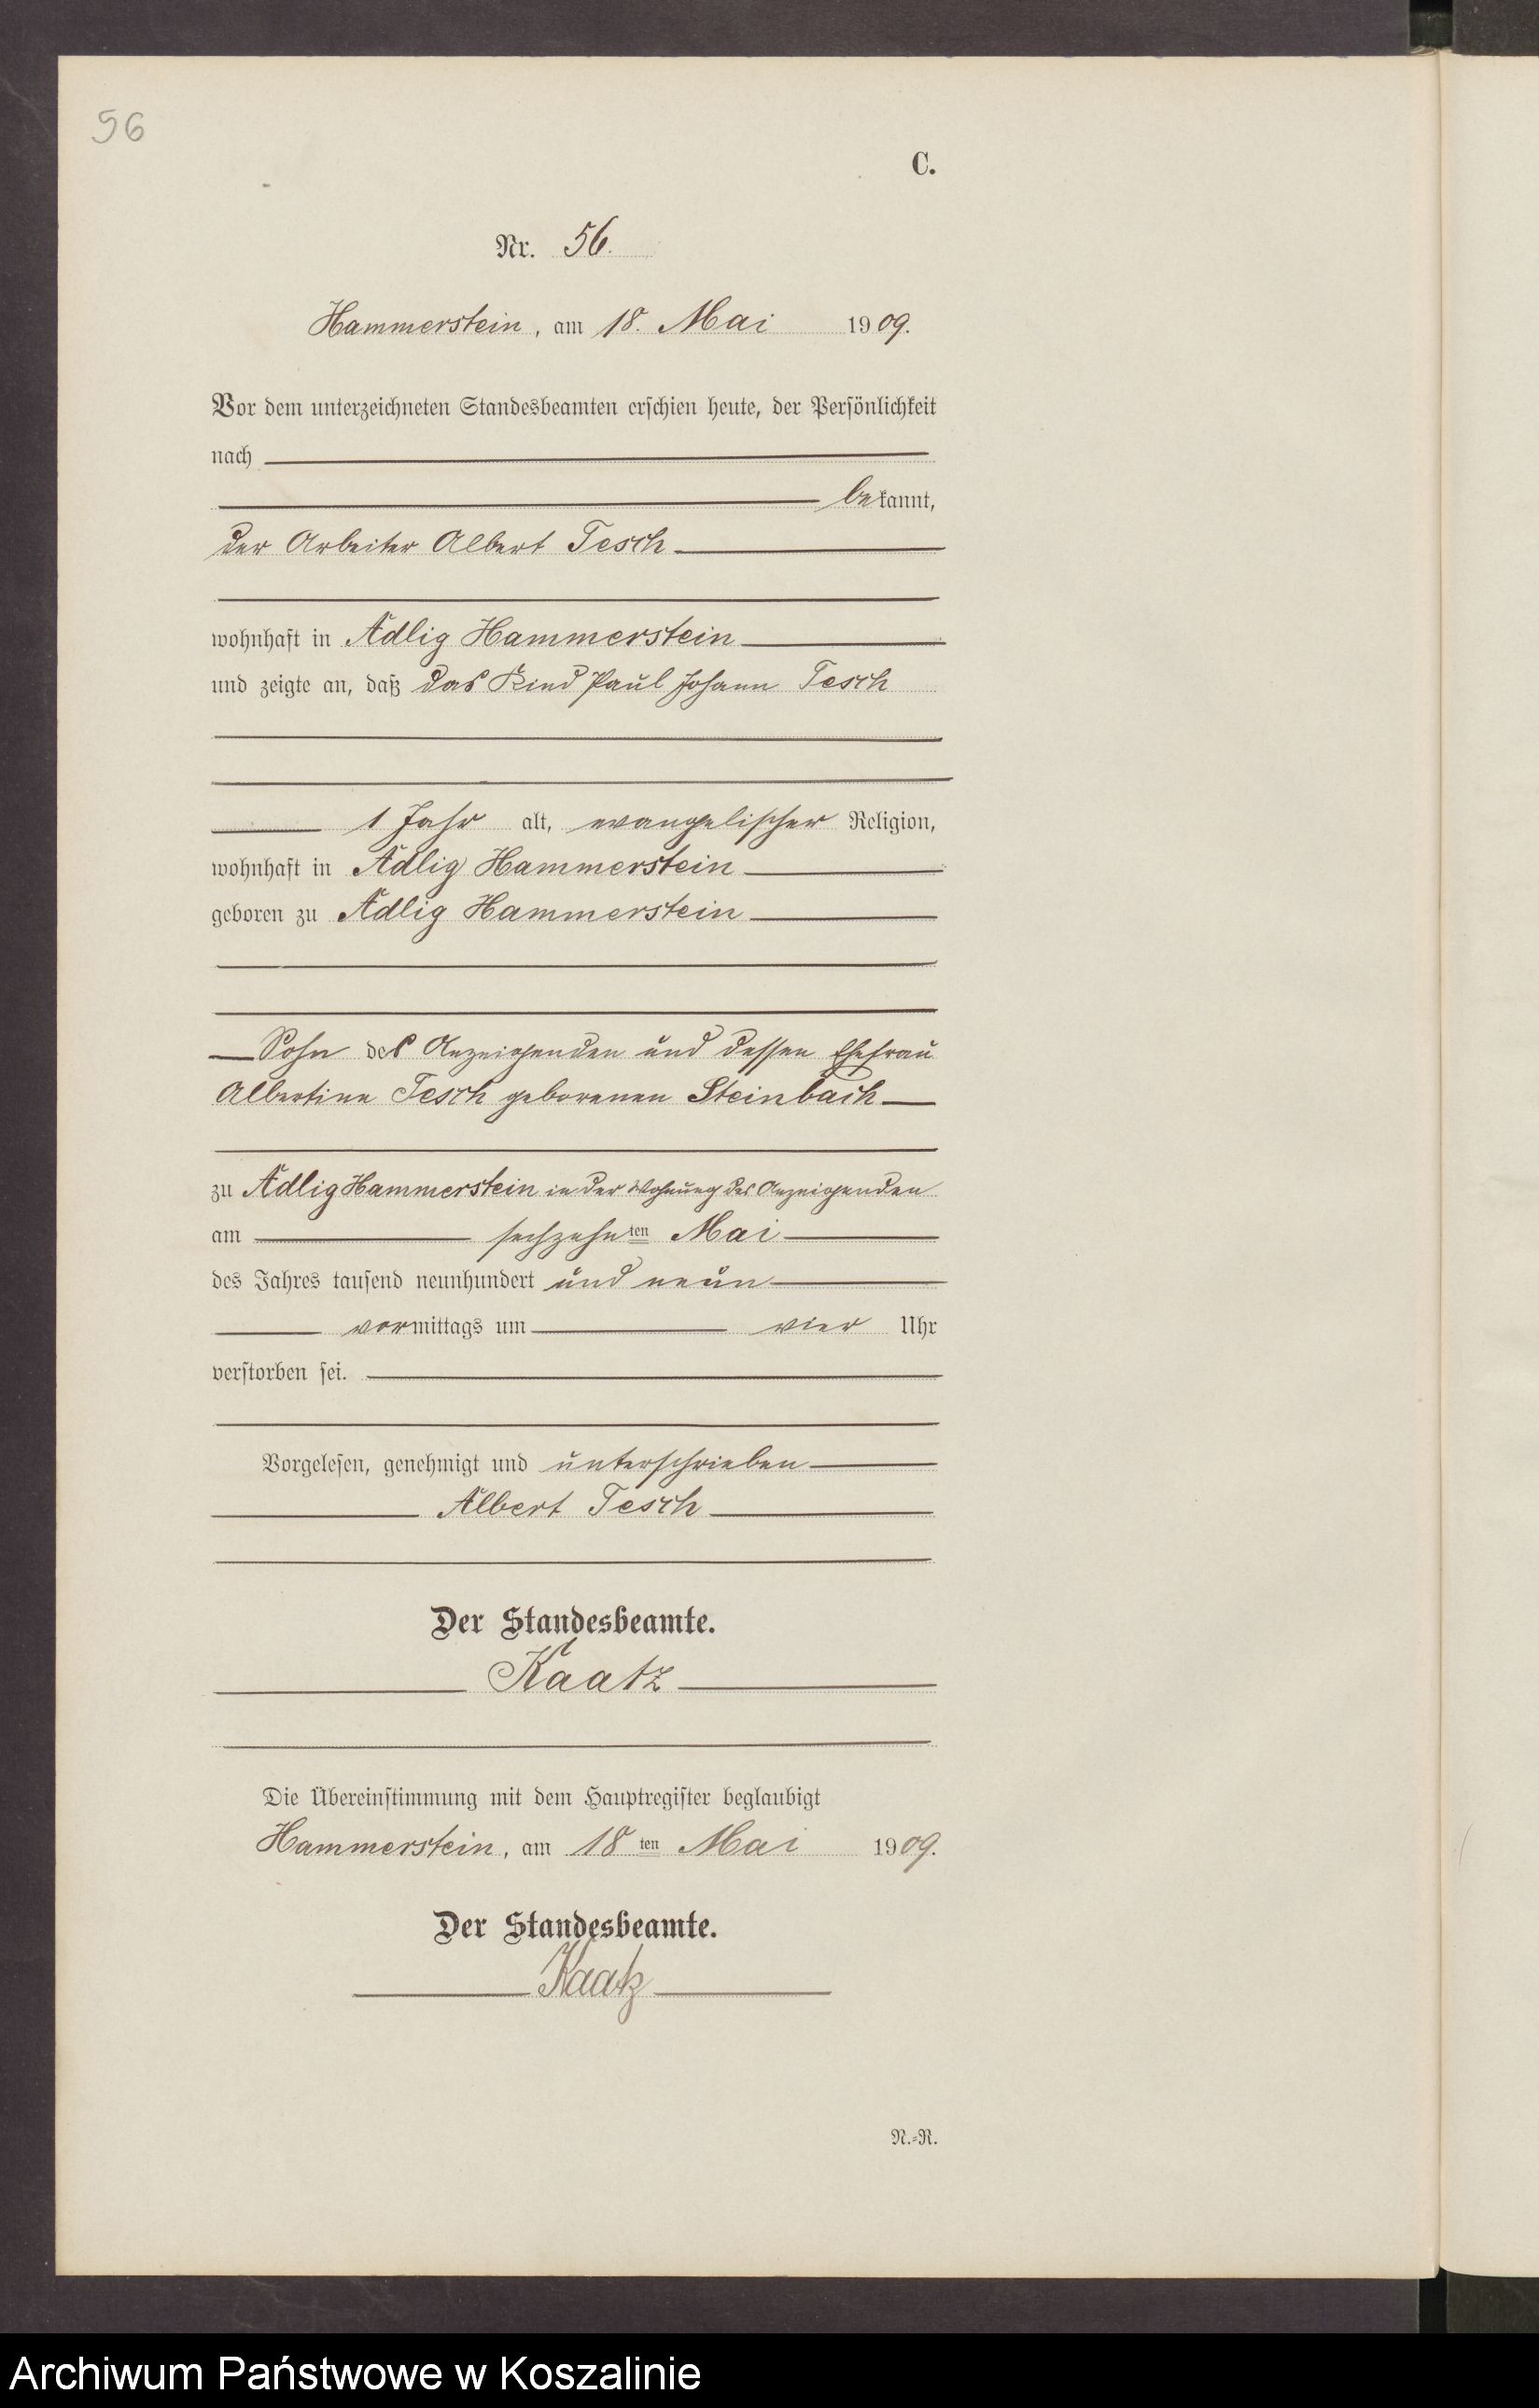 56
C.
Nr. 56.
Hammerstein, am 18. Mai 1909.
Vor dem unterzeichneten Standesbeamten erschien heute, der Persönlichkeit
nach
bekannt,
der Arbeiter Albert Tesch
wohnhaft in Adlig Hammerstein
und zeigte an, daß das Kind Paul Johann Tesch
1 Jahr alt, evangelischer Religion,
wohnhaft in Adlig Hammerstein
geboren zu Adlig Hammerstein
Sohn des Anzeigenden und dessen Ehefrau
Albertine Tesch geborenen Steinbach
zu Adlig Hammerstein in der Wohnung des Anzeigenden
am sechzehnten Mai
des Jahres tausend neunhundert und neun
vormittags um vier Uhr
verstorben sei.
Vorgelesen, genehmigt und unterschrieben
Albert Tesch
Der Standesbeamte.
Kaatz
Die Übereinstimmung mit dem Hauptregister beglaubigt
Hammerstein, am 18ten Mai 1909.
Der Standesbeamte.
Kaatz
N.-R.
Archiwum Państwowe w Koszalinie